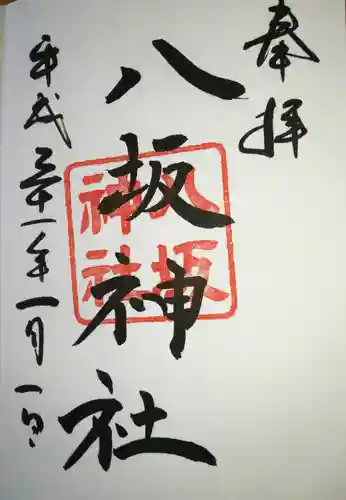 奉拝
八坂神社
八坂
神社
平成三十一年一月一日